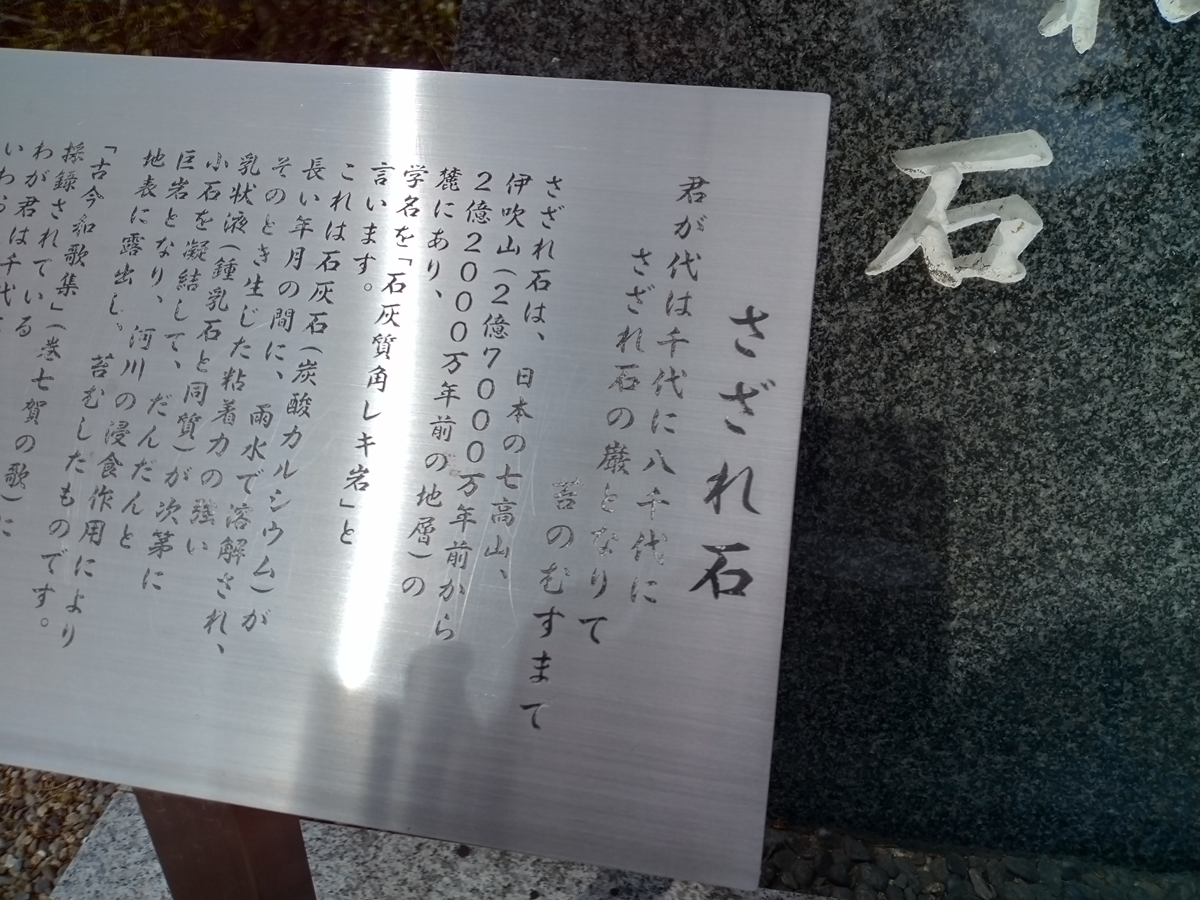 石
さざれ石
君が代は千代に八千代に
さざれ石の巌となりて
苔のむすまて
さざれ石は、日本の七高山、
伊吹山(2億7000万年前から
2億2000万年前の地層)の
麓にあり、
学名を「石灰質角レキ岩」と
言います。
これは石灰石(炭酸カルシウム)が
長い年月の間に、雨水で溶解され、
そのとき生じた粘着力の強い
乳状液(鍾乳石と同質)が次第に
小石を凝結して、だんだんと
巨岩となり、河川の浸食作用により
地表に露出し、苔むしたものです。
「古今和歌集」(巻七賀の歌)に
採録されている
わが君は千代に